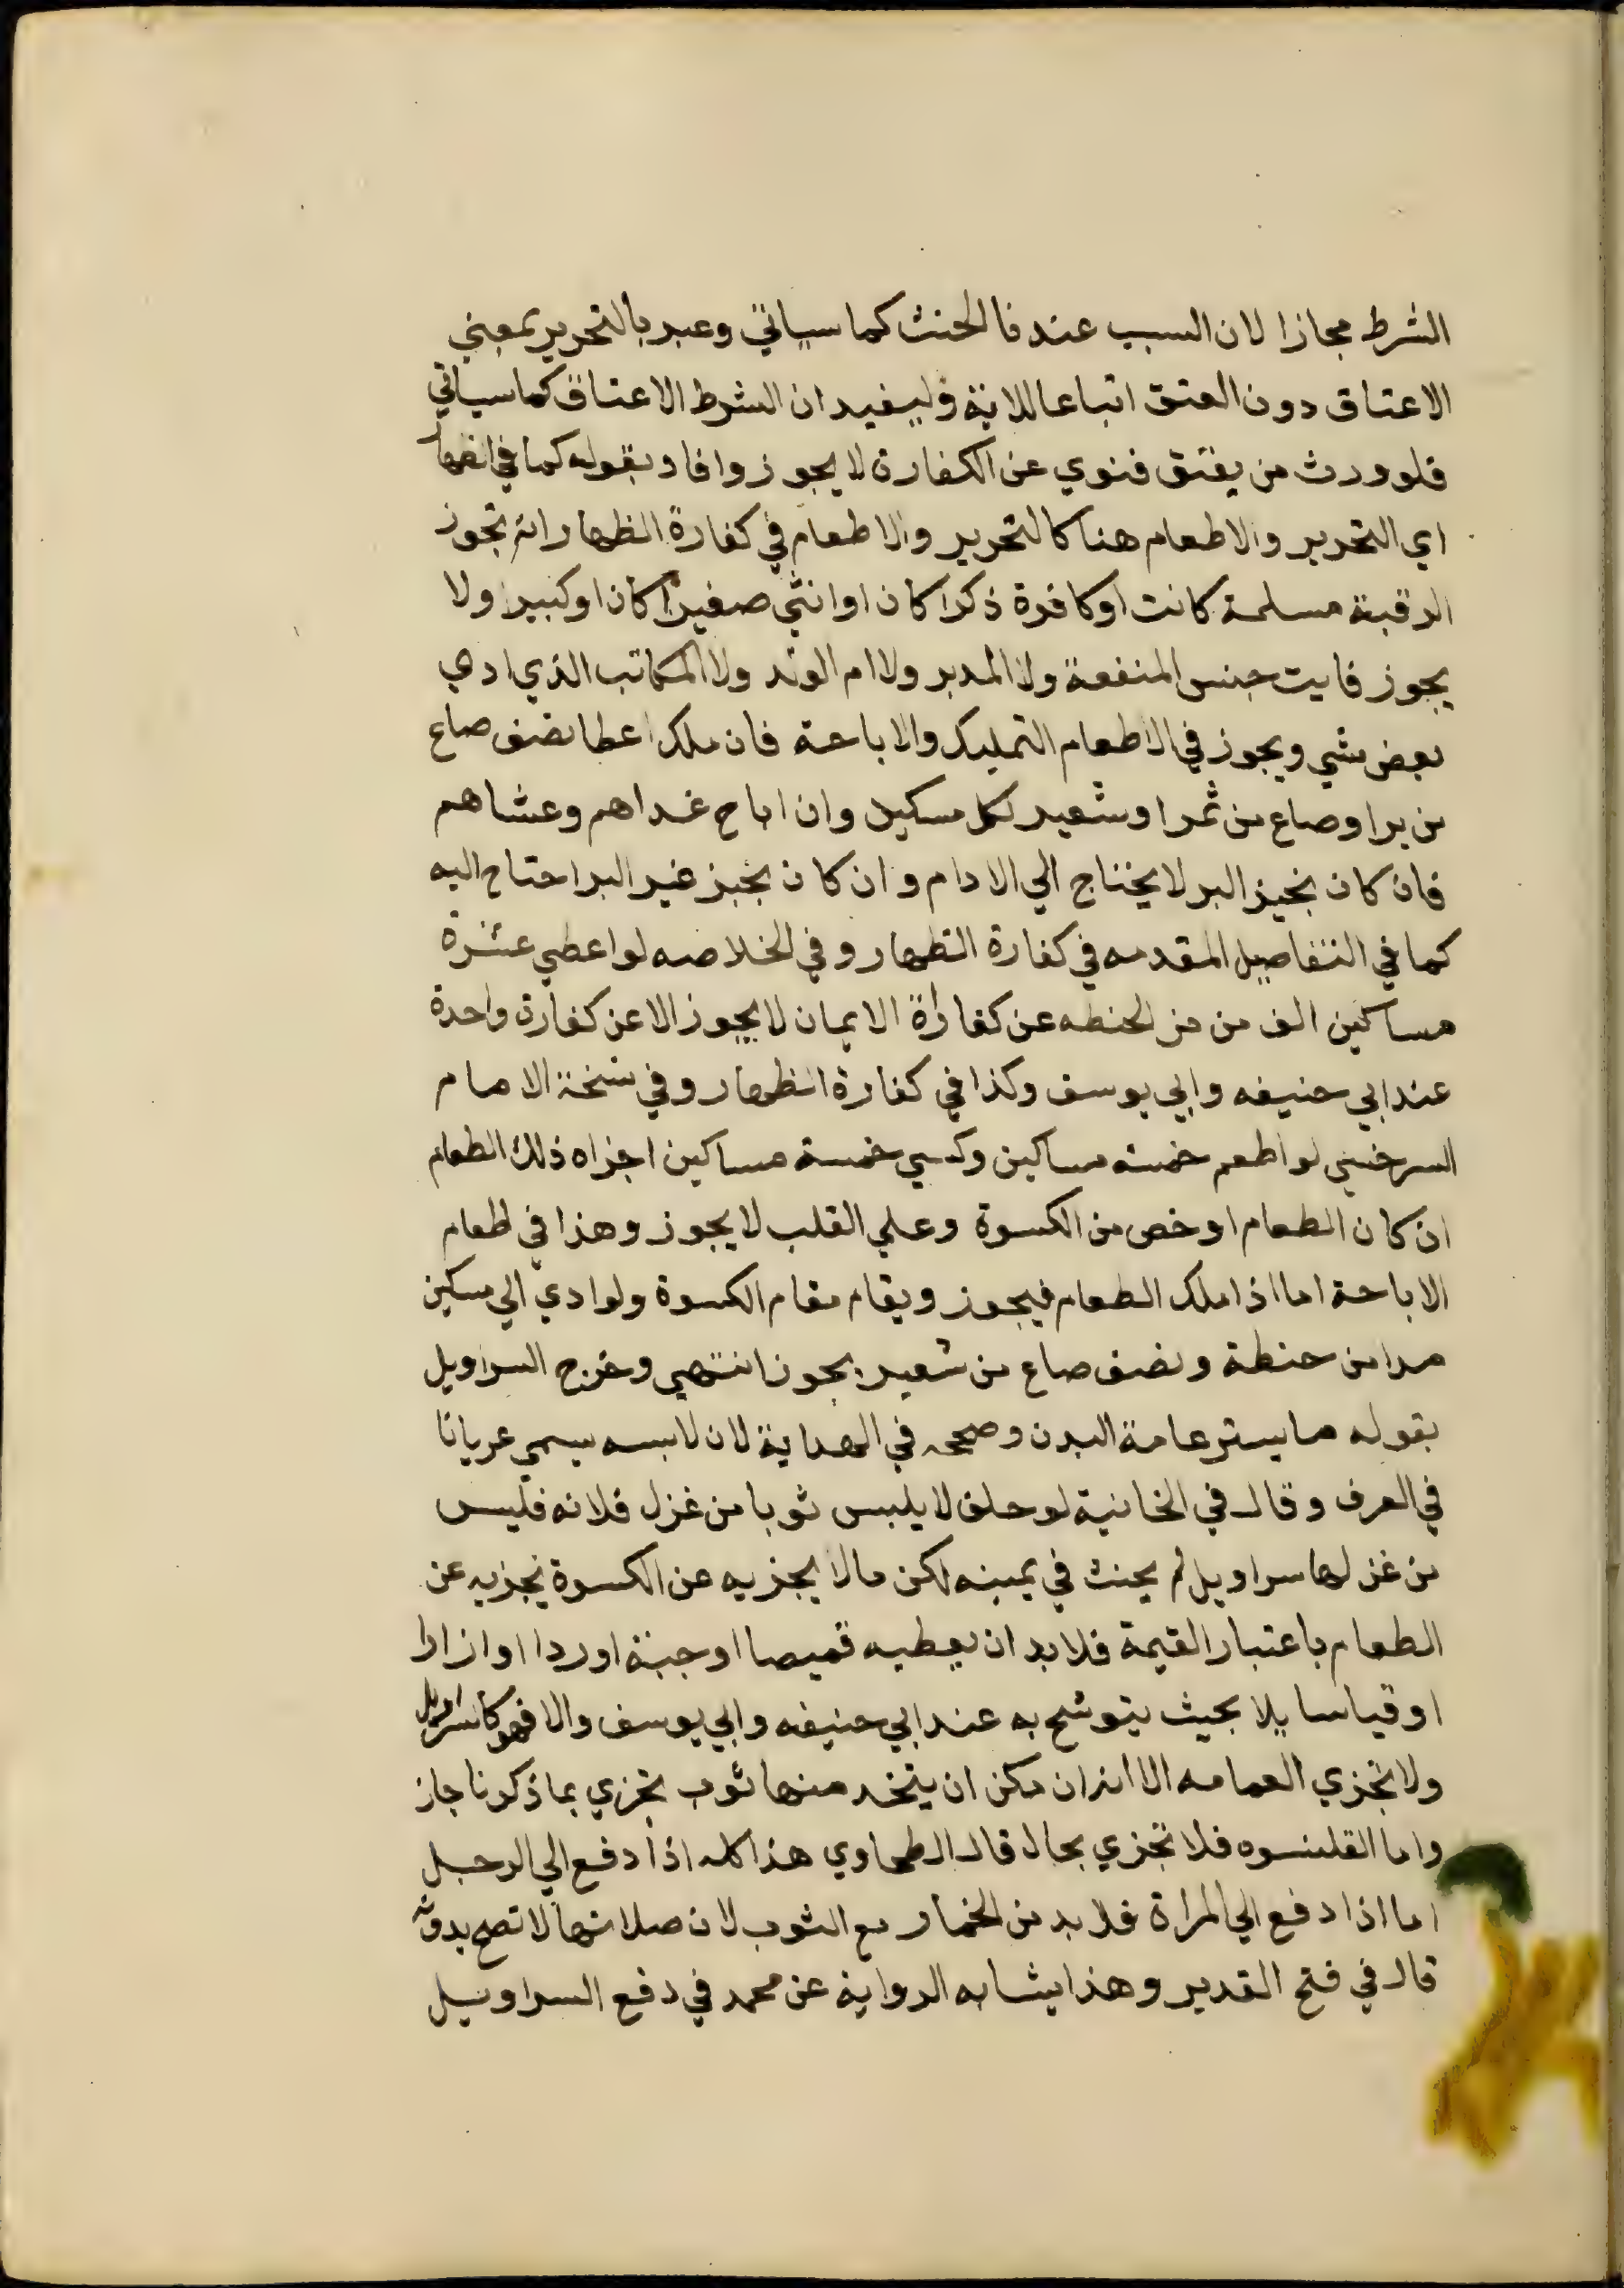 الشرط مجازا لان السبب عندنا الحنث كما سياتي وعبر بالتحرير بمعني
الاعتاق دون العتق اتباعا للاية وليفيد ان الشرط الاعتاق كما سياتي
فلو ورث من يعتق فنوي عن الكفارة لا يجوز وافاد بقوله كما في الظهار
اي التحرير والاطعام هنا كالتحرير والاطعام في كفارة الظهار انه تجوز
الرقبة مسلمة كانت او كافرة ذكرا كان او انثي صغيرا كان او كبيرا ولا
يجوز فايت جنس المنفعة ولا المدبر ولا ام الولد ولا المكاتب الذي ادي
بعض شي ويجوز في الاطعام التمليك والاباحة فان ملك اعطا نصف صاع
من بر او صاع من ثمر او شعير لكل مسكين وان اباح غداهم وعشاهم
فان كان بخبز البر لا يحتاج الي الادام وان كان بخبز غير البر احتاج اليه
كما في التفاصيل المقدمه في كفارة الظهار وفي الخلاصه لو اعطي عشرة
مساكين الف من من الحنطه عن كفارة الايمان لا يجوز الا عن كفارة واحدة
عند ابي حنيفه وابي يوسف وكذا في كفارة الظهار وفي نسخة الامام
السرخسي لو اطعم خمسة مساكين وكسي خمسة مساكين اجزاه ذلك الطعام
ان كان الطعام اوخص من الكسوة وعلي القلب لا يجوز وهذا في طعام
الاباحة اما اذا ملك الطعام فيجوز ويقام مقام الكسوة ولو ادي الي مسكين
مدا من حنطة ونصف صاع من شعير يجوز انتهي وخرج السراويل
بقوله ما يستر عامة البدن وصححه في الهداية لان لابسه يسمي عريانا
في العرف وقال في الخانية لو حلف لا يلبس ثوبا من غزل فلانه فلبس
من غزلها سراويل لم يحنث في يمينه لكن ما لا يجزيه عن الكسوة يجزيه عن
الطعام باعتبار القيمة فلا بد ان يعطيه قميصا او جبة او ردا او ازارا
او قيا سابلا بحيث يتوشح به عند ابي حنيفه وابي يوسف والا فهو كالسراويل
ولا تجزي العمامه الا انه ان مكن ان يتخد منها ثوب تجزي بما ذكرنا جاز
واما القلنسوه فلا تجزي بحال قال الطحاوي هذا كله اذا دفع الي الرجل
اما اذا دفع الي المراة فلا بد من الخمار مع الثوب لان صلاتها لا تصح بدونه
قال في فتح القدير وهذا يشابه الرواية عن محمد في دفع السراويل